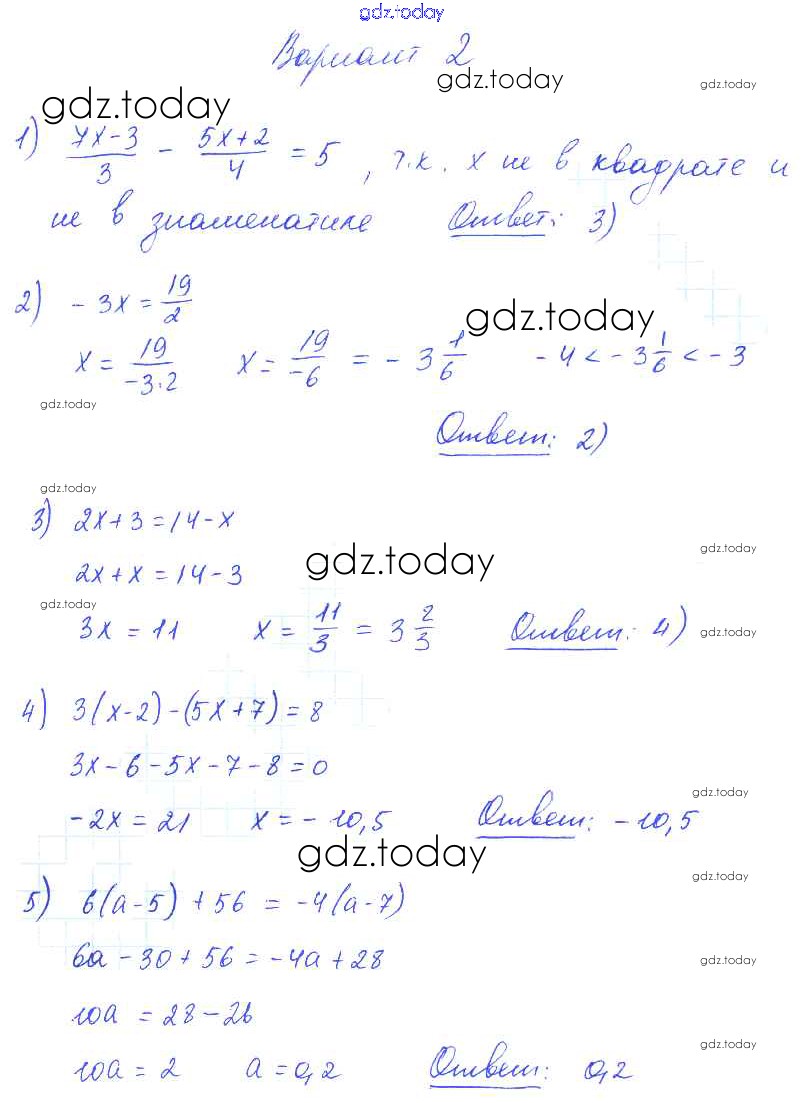 gdz.today
Вариант 2
gdz.today
gdz.today
gdz.today
1) (7x-3)/3 - (5x+2)/4 = 5, т.к. x не в квадрате и
не в знаменатиле Ответ: 3)
2) -3x = 19/2
gdz.today
x = 19/(-3·2) x = 19/(-6) = -3 1/6 -4 < -3 1/6 < -3
gdz.today
Ответ: 2)
gdz.today
3) 2x+3=14-x
gdz.today
gdz.today
2x+x=14-3
gdz.today
3x = 11 x = 11/3 = 3 2/3 Ответ: 4)
gdz.today
4) 3(x-2)-(5x+7)=8
3x-6-5x-7-8=0
gdz.today
-2x = 21 x = -10,5 Ответ: -10,5
gdz.today
gdz.today
5) 6(a-5) + 56 = -4(a-7)
6a-30+56=-4a+28
gdz.today
10a = 28-26
gdz.today
10a = 2 a = 0,2 Ответ: 0,2